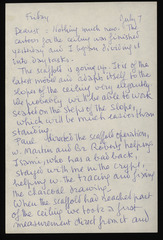 Friday July 7
Dearest: Nothing much new. The
cartoon for the ceiling was finished
yesterday and I begin dividing it
into day tasks.
The scaffold is going up. It is of the
latest model and adapts itself to the
slope of the ceiling very elegantly.
We probably will be able to work
seated on the steps of the slope,
which will be much easier than
standing.
Paul directed the scaffold operation,
w. Martin and Br. Roberts helping.
Isami, who has a bad back,
stayed with me in the crypt,
helping in the tracing and fixing
the charcoal drawing.
When the scaffold had reached part
of the ceiling we took a first
measurement direct from it and